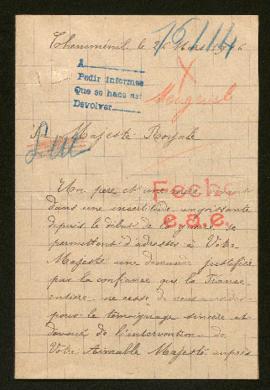 Cheniménil le 26 Mars 1916
A
Pedir informes
Que se hace así
Devolver
A Sa Majesté Royale
Un père et une mère
dans une incertitude angoissante
depuis le début de la guerre se
permettent d'adresser à Votre
Majesté une demande justifiée
par la confiance que la France
entière ne cesse de
pour le témoignage sincère et
dévoué de l'intervention de
Votre Aimable Majesté auprès
Fecha
e.a.e.